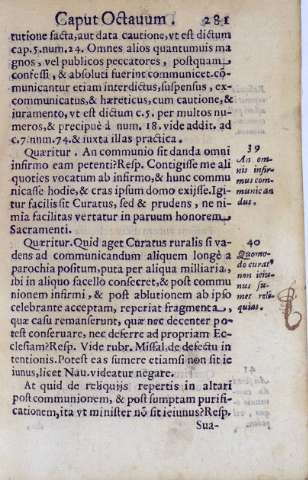 Caput Octauum. 281
tutione facta, aut data cautione, vt est dictum
cap. 5. num. 24. Omnes alios quantumuis ma
gnos, vel publicos peccatores, postquam
confessi, & absoluti fuerint communicet. cō-
municantur etiam interdictus, suspensus, ex-
communicatus, & haereticus, cum cautione, &
iuramento, vt est dictum c. 5. per multos nu-
meros, & precipuè à num. 18. vide addit. ad
c. 7. num. 74. & iuxta illas practica.
Quæritur. An communio sit danda omni
infirmo eam petenti? Resp. Contigisse me ali
quoties vocatum ab infirmo, & hunc commu
nicasse hodie, & cras ipsum domo exijsse. Igi
tur facilis sit Curatus, sed & prudens, ne ni-
mia facilitas vertatur in paruum honorem
Sacramenti.
39
An om-
nis infir
mus com-
munican
dus.
Quæritur. Quid aget Curatus ruralis si va-
dens ad communicandum aliquem longè a
parochia positum, puta per aliqua milliaria,
ibi in aliquo sacello consecret, & post commu
nionem infirmi, & post ablutionem ab ipso
celebrante acceptam, reperiat fragmenta,
quæ casu remanserunt, quæ nec decenter po-
test conseruare, nec deferre ad propriam Ec-
clesiam? Resp. Vide rubr. Missal. de defectu in
tentionis. Potest eas sumere etiamsi non sit ie
iunus, licet Nau. videatur negare.
40
Quomo-
do curat'
non ieiu-
nus su-
met reli-
quias.
At quid de reliquijs repertis in altari
post communionem, & post sumptam purifi-
cationem, ita vt minister nō sit ieiunus? Resp.
Sua-
41